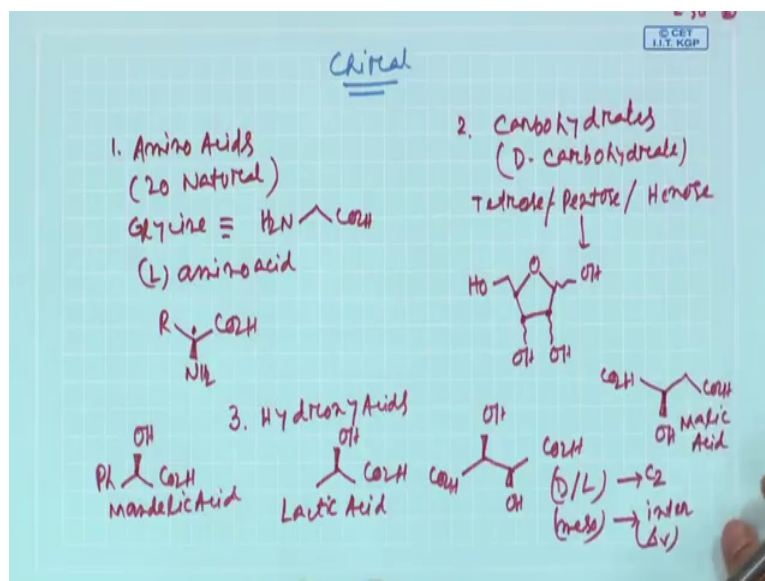 © CET
I.I.T. KGP
Chiral
1. Amino Acids
(20 Natural)
Glycine ≡ H2N CO2H
(L) amino acid
R CO2H
NH2
2. Carbohydrates
(D- Carbohydrate)
Tetrose/ Pentose/ Hexose
HO O OH
OH OH
3. Hydroxy Acids
OH
Ph CO2H
Mandelic Acid
OH
CO2H
Lactic Acid
OH
CO2H CO2H
OH
(D/L) → C2
(meso) → inver
CO2H CO2H
OH Malic
Acid